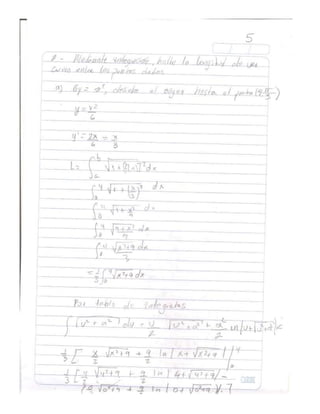 5
8.- Mediante integración, halle la longitud de una
curva entre los puntos dados
a) 6y = x², desde el origen hasta el punto (4, 8/3)
y = x²/6
y' = 2x/6 = x/3
L = ∫ₐᵇ √1+[f'(x)]² dx
∫₀⁴ √1+(x/3)² dx
∫₀⁴ √1+x²/9 dx
∫₀⁴ √9+x²/9 dx
∫₀⁴ √x²+9 dx/3
= 1/3 ∫₀⁴ √x²+9 dx
Por tabla de integrales
∫√u²+a² du = u/2 √u²+a² + a²/2 ln|u+√u²+a²|+c
1/3 [ x/2 √x²+9 + 9/2 ln|x+√x²+9| ]₀⁴
1/3 [ 4/2 √4²+9 + 9/2 ln|4+√4²+9| -
0/2 √0²+9 + 9/2 ln|0+√0²+9| ]